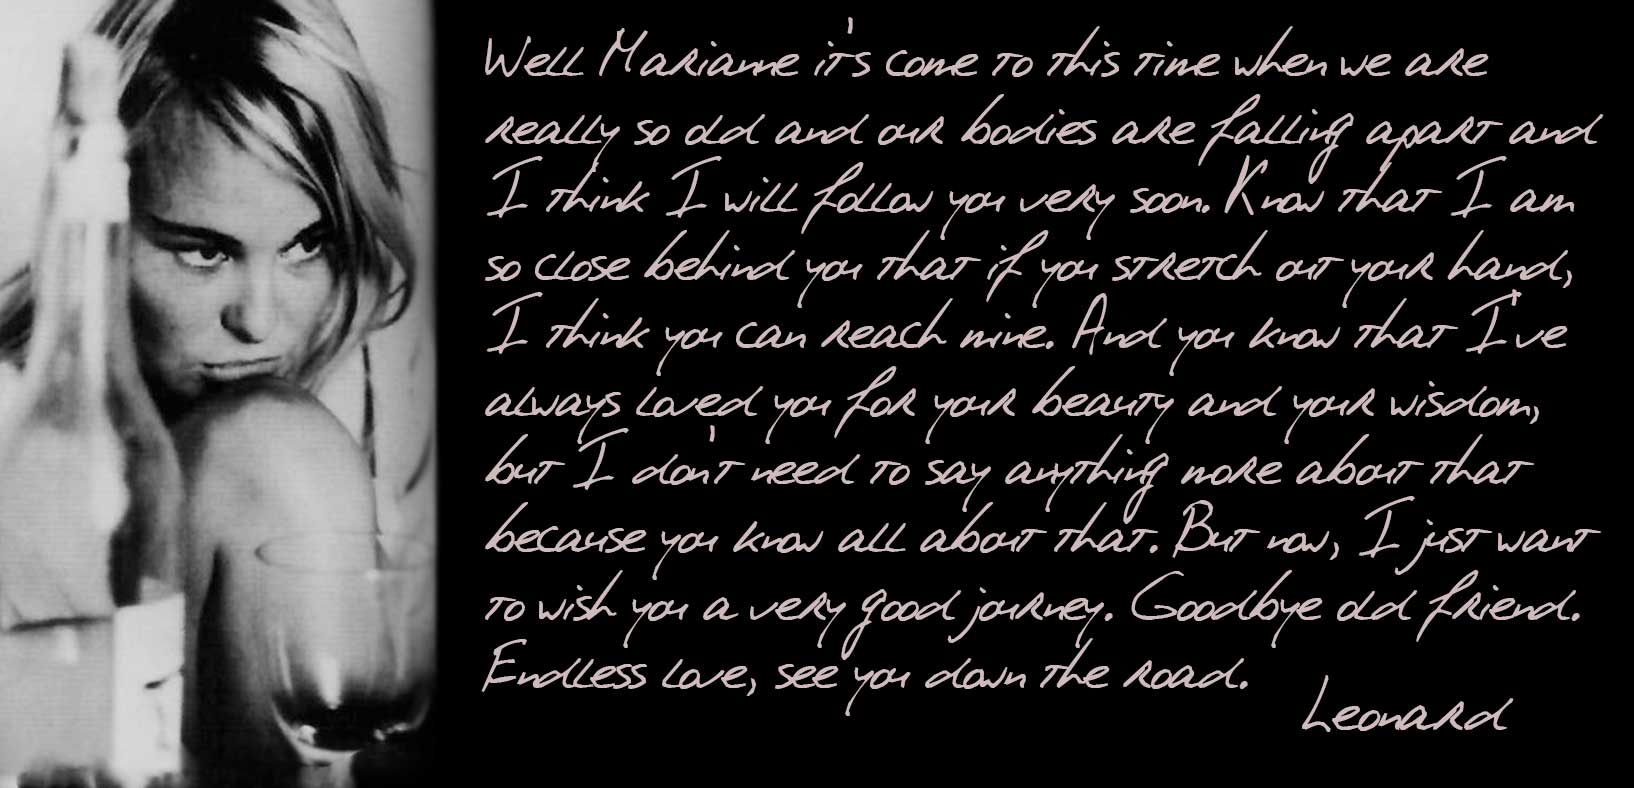 Well Marianne it's come to this time when we are
really so old and our bodies are falling apart and
I think I will follow you very soon. Know that I am
so close behind you that if you stretch out your hand,
I think you can reach mine. And you know that I've
always loved you for your beauty and your wisdom,
but I don't need to say anything more about that
because you know all about that. But now, I just want
to wish you a very good journey. Goodbye old friend.
Endless love, see you down the road.
Leonard